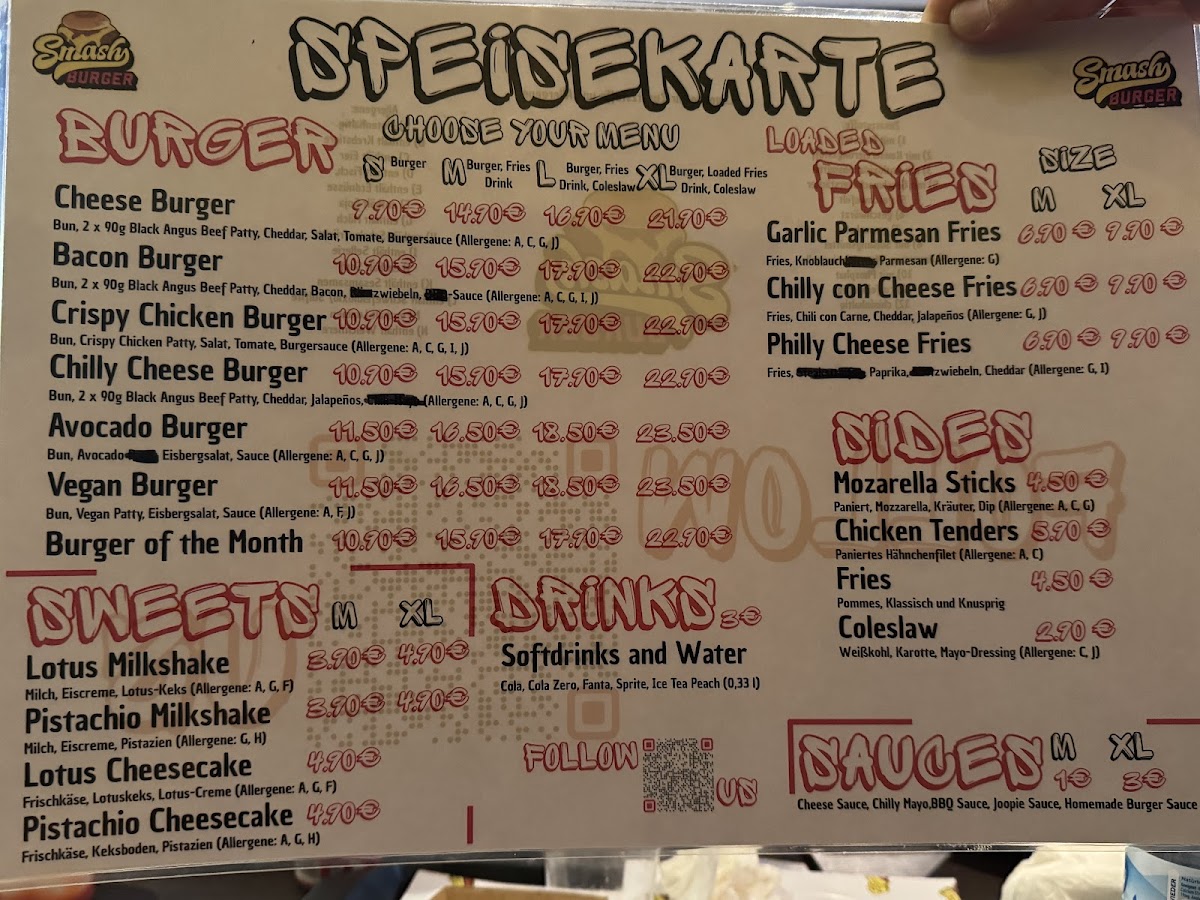 Smash
BURGER
SPEISEKARTE
Smash
BURGER
BURGER
CHOOSE YOUR MENU
S Burger
M Burger, Fries
Drink
L Burger, Fries
Drink, Coleslaw
XL Burger, Loaded Fries
Drink, Coleslaw
Cheese Burger 9.90€ 14.90€ 16.90€ 21.90€
Bun, 2 x 90g Black Angus Beef Patty, Cheddar, Salat, Tomate, Burgersauce (Allergene: A, C, G, J)
Bacon Burger 10.90€ 15.90€ 17.90€ 22.90€
Bun, 2 x 90g Black Angus Beef Patty, Cheddar, Bacon, zwiebeln, -Sauce (Allergene: A, C, G, I, J)
Crispy Chicken Burger 10.90€ 15.90€ 17.90€ 22.90€
Bun, Crispy Chicken Patty, Salat, Tomate, Burgersauce (Allergene: A, C, G, I, J)
Chilly Cheese Burger 10.90€ 15.90€ 17.90€ 22.90€
Bun, 2 x 90g Black Angus Beef Patty, Cheddar, Jalapeños, (Allergene: A, C, G, J)
Avocado Burger 11.50€ 16.50€ 18.50€ 23.50€
Bun, Avocado Eisbergsalat, Sauce (Allergene: A, C, G, J)
Vegan Burger 11.50€ 16.50€ 18.50€ 23.50€
Bun, Vegan Patty, Eisbergsalat, Sauce (Allergene: A, F, J)
Burger of the Month 10.90€ 15.90€ 17.90€ 22.90€
LOADED
FRIES
SIZE
M XL
Garlic Parmesan Fries 6.90€ 9.90€
Fries, Knoblauch Parmesan (Allergene: G)
Chilly con Cheese Fries 6.90€ 9.90€
Fries, Chili con Carne, Cheddar, Jalapeños (Allergene: G, J)
Philly Cheese Fries 6.90€ 9.90€
Fries, Paprika, zwiebeln, Cheddar (Allergene: G, I)
SIDES
Mozarella Sticks 4.50€
Paniert, Mozzarella, Kräuter, Dip (Allergene: A, C, G)
Chicken Tenders 5.90€
Paniertes Hähnchenfilet (Allergene: A, C)
Fries 4.50€
Pommes, Klassisch und Knusprig
Coleslaw 2.90€
Weißkohl, Karotte, Mayo-Dressing (Allergene: C, J)
SWEETS M XL
Lotus Milkshake 3.90€ 4.90€
Milch, Eiscreme, Lotus-Keks (Allergene: A, G, F)
Pistachio Milkshake 3.90€ 4.90€
Milch, Eiscreme, Pistazien (Allergene: G, H)
Lotus Cheesecake 4.90€
Frischkäse, Lotuskeks, Lotus-Creme (Allergene: A, G, F)
Pistachio Cheesecake 4.90€
Frischkäse, Keksboden, Pistazien (Allergene: A, G, H)
DRINKS 3€
Softdrinks and Water
Cola, Cola Zero, Fanta, Sprite, Ice Tea Peach (0,33 l)
FOLLOW
US
SAUCES M XL
1€ 3€
Cheese Sauce, Chilly Mayo,BBQ Sauce, Joopie Sauce, Homemade Burger Sauce